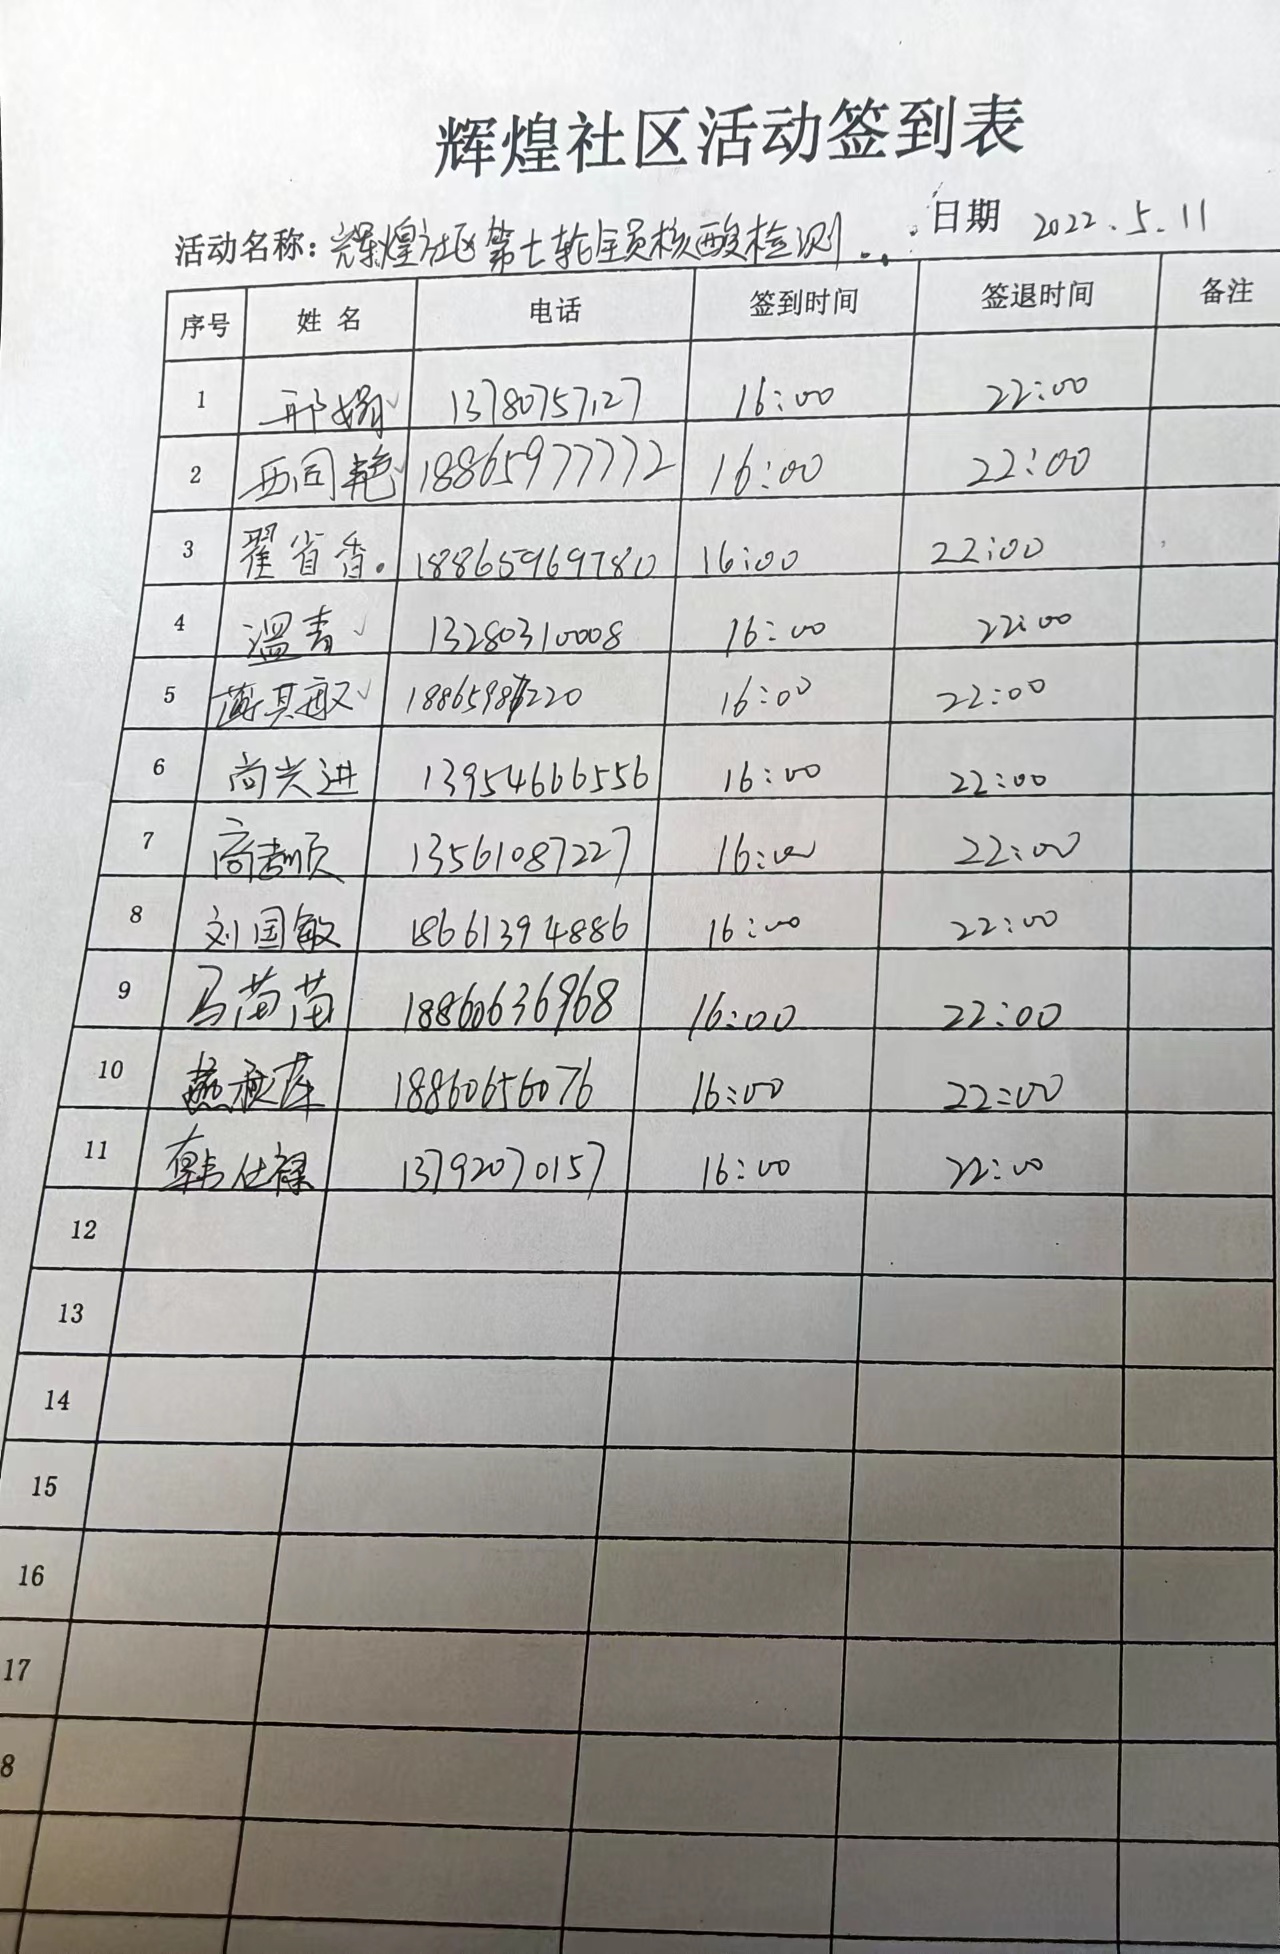 辉煌社区活动签到表
活动名称：辉煌社区第七轮全员核酸检测 日期 2022.5.11
序号 姓名 电话 签到时间 签退时间 备注
1 邢娟 13780757127 16:00 22:00
2 西同艳 18865977772 16:00 22:00
3 翟省香. 18865969780 16:00 22:00
4 温青 13280310008 16:00 22:00
5 16:00 22:00
6 尚兴进 13954666556 16:00 22:00
7 13561087227 16:00 22:00
8 刘国敏 18661394886 16:00 22:00
9 马苗苗 18860636968 16:00 22:00
10 燕秋萍 18860656076 16:00 22:00
11 韩仕禄 13792070157 16:00 22:00
12
13
14
15
16
17
8